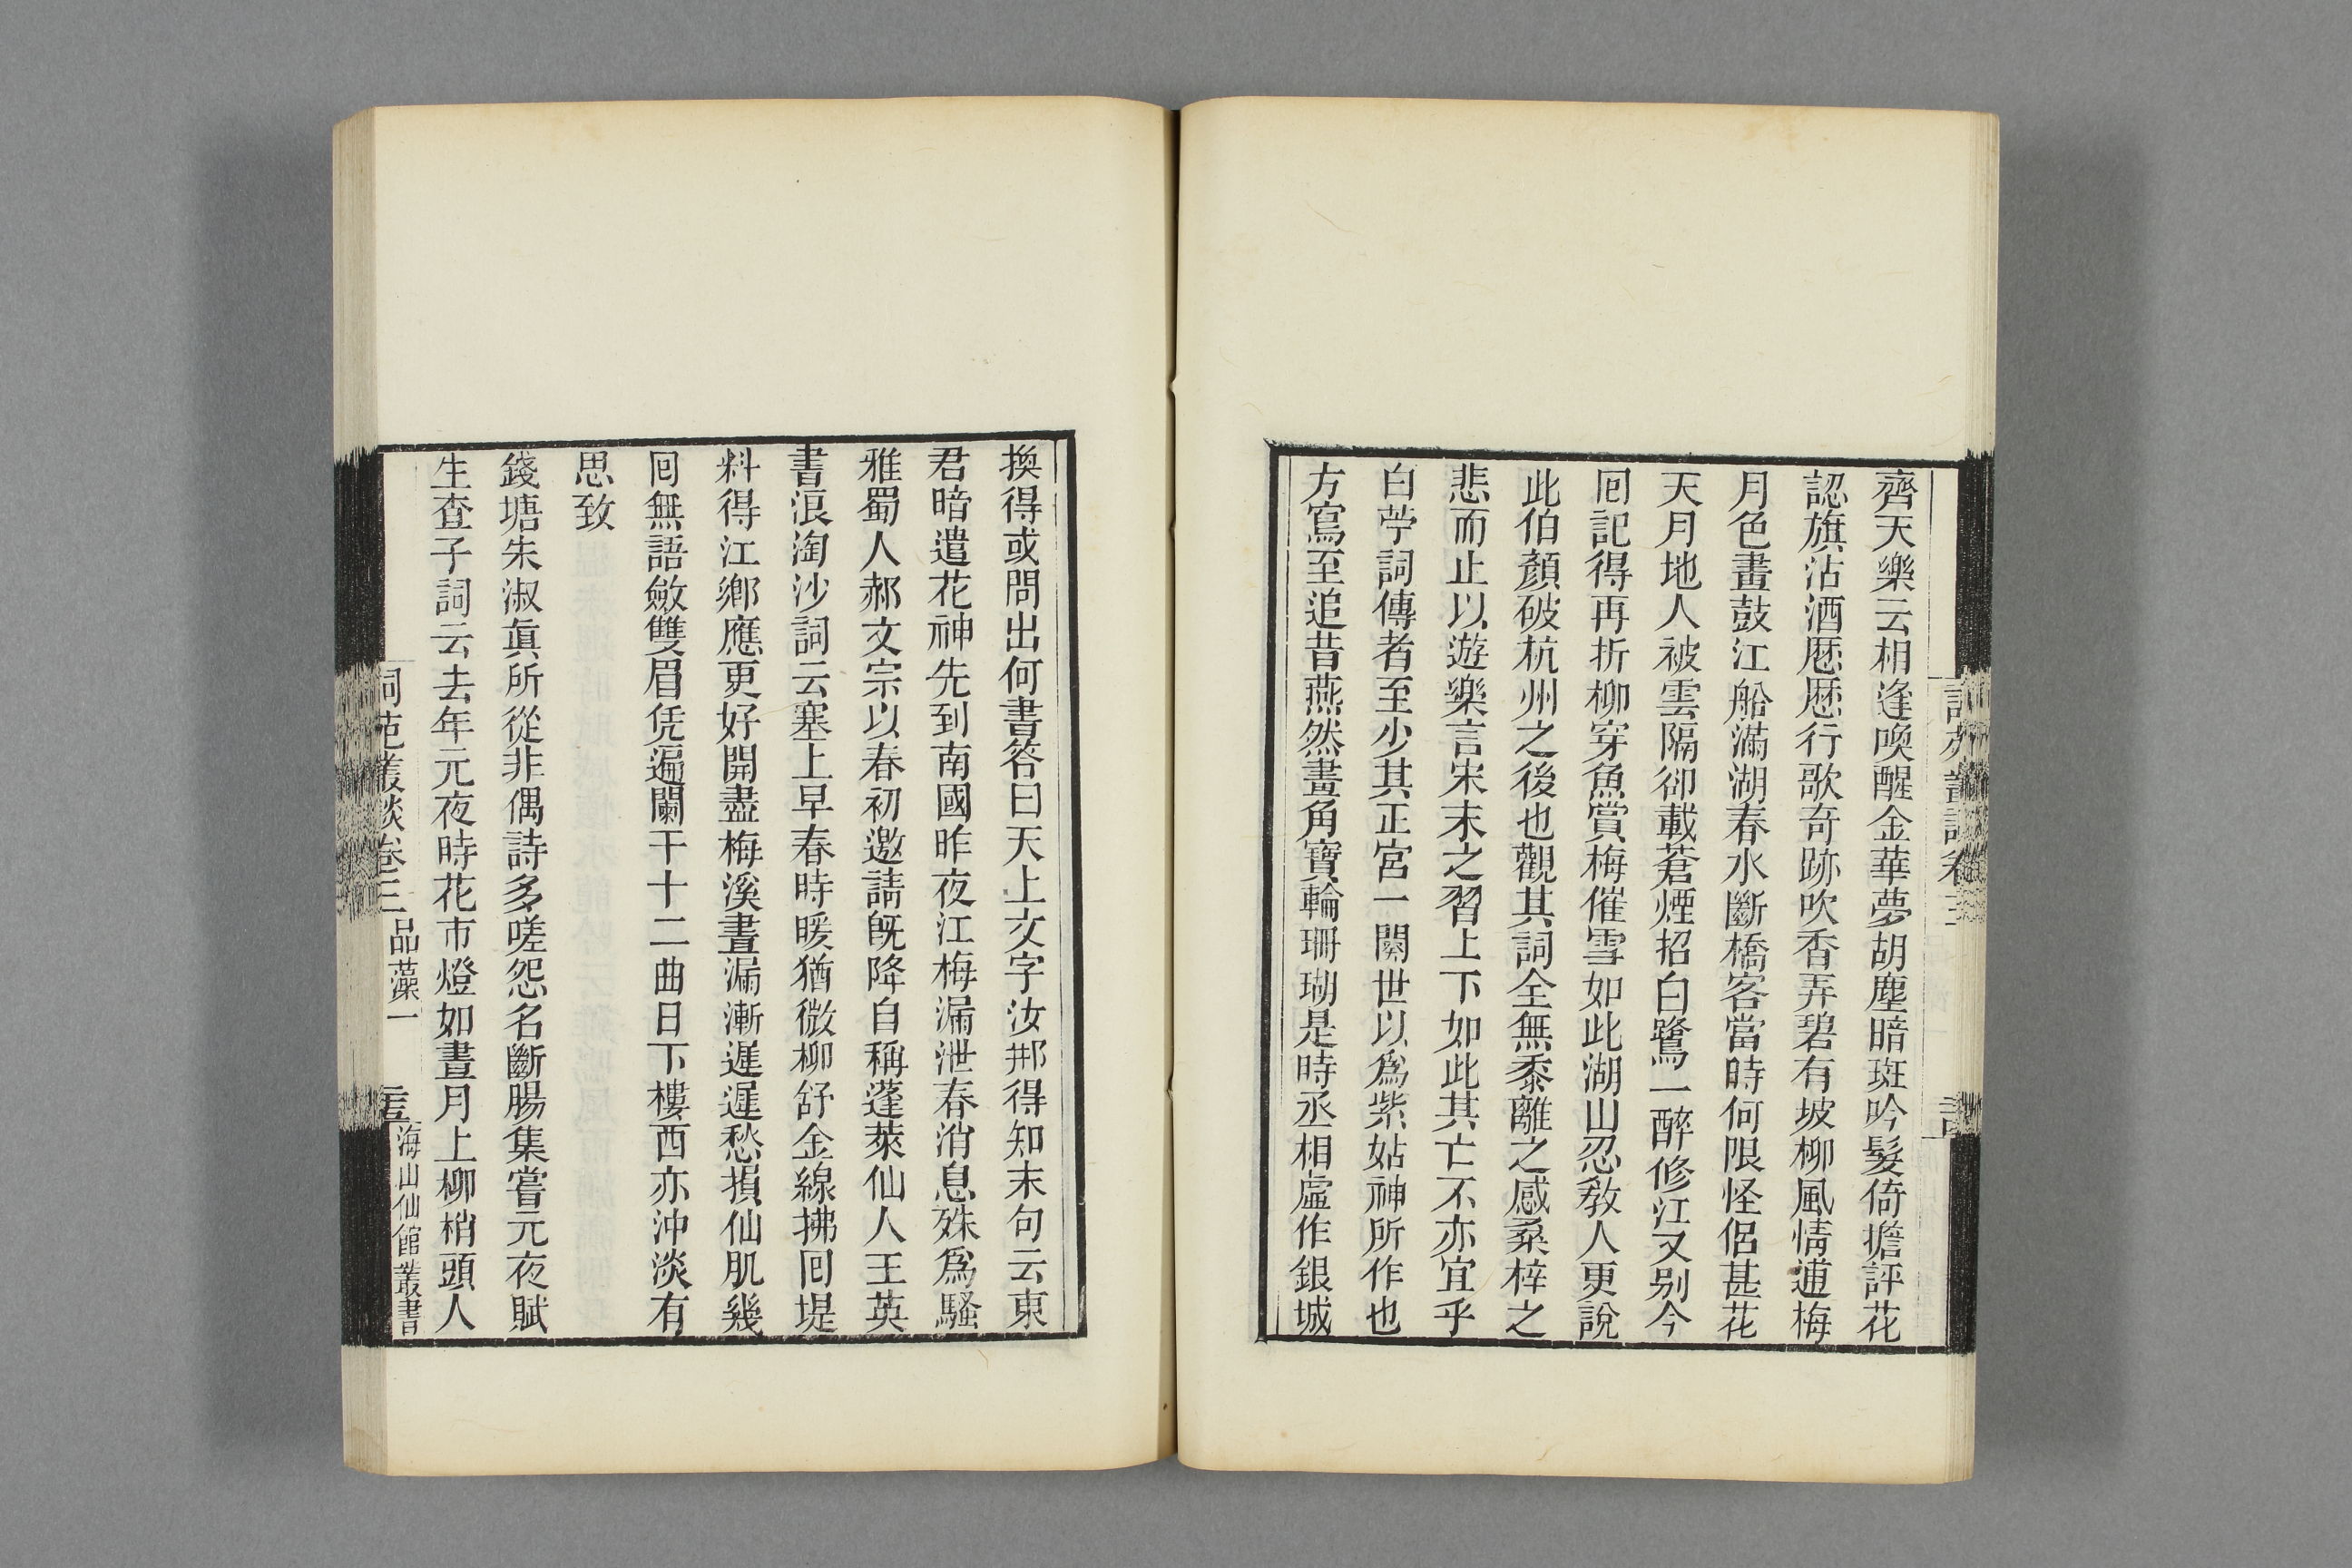 齊天樂云相逢喚醒金華夢胡塵暗斑吟髮倚擔評花
認旗沽酒厯厯行歌奇跡吹香弄碧有坡柳風情逋梅
月色畫鼓江船滿湖春水斷橋客當時何限怪侶甚花
天月地人被雲隔卻載蒼煙招白鷺一醉修江又别今
囘記得再折柳穿魚賞梅催雪如此湖山忍敎人更說
此伯顏破杭州之後也觀其詞全無黍離之感桑梓之
悲而止以遊樂言宋末之習上下如此其亡不亦宜乎
白苧詞傳者至少其正宮一闋世以爲紫姑神所作也
方寫至追昔燕然畫角寶輪珊瑚是時丞相虛作銀城
換得或問出何書答曰天上文字汝那得知末句云東
君暗遣花神先到南國昨夜江梅漏泄春消息殊爲騷
雅蜀人郝文宗以春初邀請旣降自稱蓬萊仙人王英
書浪淘沙詞云塞上早春時暖猶微柳舒金線拂囘堤
料得江鄉應更好開盡梅溪晝漏漸遲遲愁損仙肌幾
囘無語斂雙眉凭遍闌干十二曲日下樓西亦沖淡有
思致
錢塘朱淑眞所從非偶詩多嗟怨名斷腸集嘗元夜賦
生查子詞云去年元夜時花市燈如晝月上柳梢頭人
詞苑叢談卷三 品藻一 海山仙館叢書